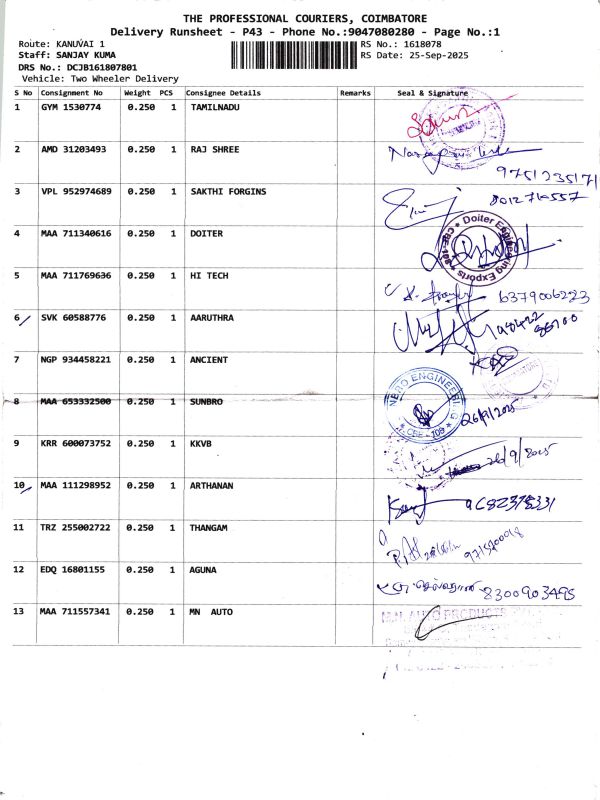 THE PROFESSIONAL COURIERS, COIMBATORE
Delivery Runsheet - P43 - Phone No.:9047080280 - Page No.:1
Route: KANUVAI 1 RS No.: 1618078
Staff: SANJAY KUMA RS Date: 25-Sep-2025
DRS No.: DCJB161807801
Vehicle: Two Wheeler Delivery
S No Consignment No Weight PCS Consignee Details Remarks Seal & Signature
1 GYM 1530774 0.250 1 TAMILNADU
2 AMD 31203493 0.250 1 RAJ SHREE
9751235171
3 VPL 952974689 0.250 1 SAKTHI FORGINS
4 MAA 711340616 0.250 1 DOITER
Doiter Engineering Exports * CBE-109 *
5 MAA 711769636 0.250 1 HI TECH
6379006223
6 SVK 60588776 0.250 1 AARUTHRA
7 NGP 934458221 0.250 1 ANCIENT
8 MAA 653332500 0.250 1 SUNBRO
NERO ENGINEERING * CBE - 109 *
26/9/2025
9 KRR 600073752 0.250 1 KKVB
26/9/2025
10 MAA 111298952 0.250 1 ARTHANAN
9682378331
11 TRZ 255002722 0.250 1 THANGAM
12 EDQ 16801155 0.250 1 AGUNA
8300903495
13 MAA 711557341 0.250 1 MN AUTO
AUTO PRODUCTS